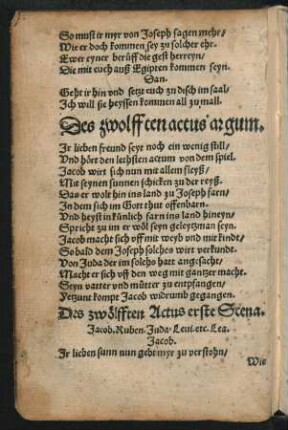 So must ir myr von Joseph sagen mehr/
Wie er doch kommen sey zu solcher ehr.
Ewer eyner berüff die gest herreyn/
Die mit euch auß Egipten kommen seyn.
Dan.
Geht ir hin vnd setzt euch zu disch im saal/
Ich will sie heyssen kommen all zu mall.
Des zwolfften actus argum.
Ir lieben freund seyt noch ein wenig still/
Vnd hört den letzsten actum von dem spiel.
Jacob wirt sich nun mit allem fleyß/
Mit seynen sunnen schicken zu der reyß.
Das er wolt hin ins land zu Joseph farn/
In dem sich im Gott thut offenbarn.
Vnd heyst in künlich farn ins land hineyn/
Spricht zu im er wöl seyn geleytzman seyn.
Jacob macht sich vff mit weyb vnd mit kindt/
So bald dem Joseph solches wirt verkundt.
Von Juda der im solchs hatt angesacht/
Macht er sich vff den weg mit gantzer macht.
Seyn vatter vnd mütter zu entpfangen/
Yetzunt kompt Jacob widrumb gegangen.
Des zwölfften Actus erste Scena.
Jacob. Ruben. Juda. Leui. etc. Lea.
Jacob.
Ir lieben sunn nun geht myr zu verstohn/
Wie